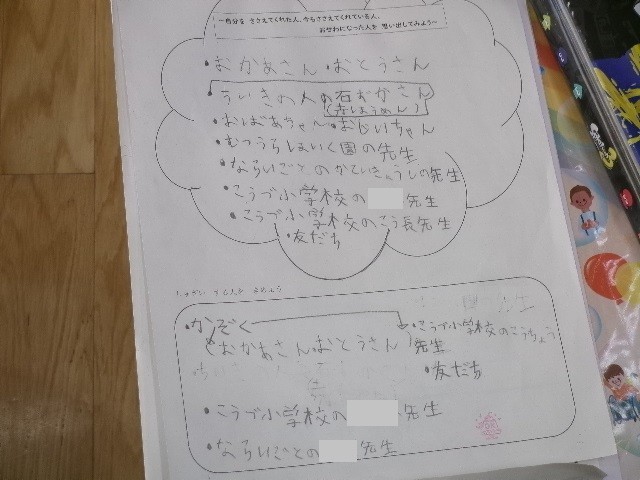 ～自分を ささえてくれた人、今もささえてくれている人、
おせわになった人を 思い出してみよう～
・おかあさん・おとうさん
・ういきの人の石おかさん
・おばあちゃん・おじいちゃん
・むつうらほいく園の先生
・ならいごとの
先生
・こうづ小学校の 先生
・こうづ小学校のこう長先生
・友だち
・かぞく
(おかあさんおとうさん)
・こうづ小学校のこうちょう
先生
・友だち
・こうづ小学校の 先生
・ならいごとの 先生